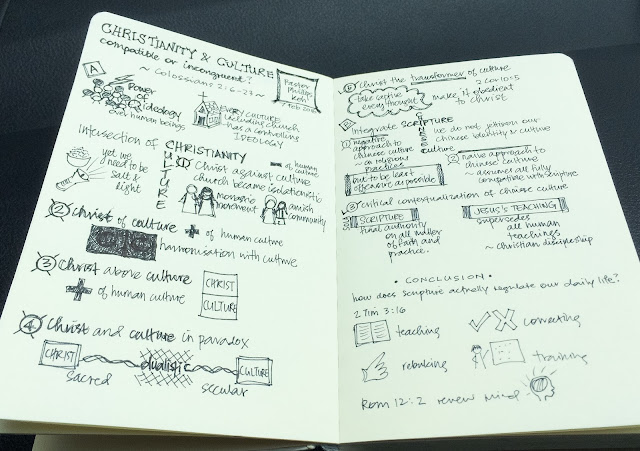 CHRISTIANITY & CULTURE
compatible or incongruent?
~ Colossians 2:6-23 ~
Pastor
Phillip
Koh
7 Feb
A
Power
& ideology
over human beings
EVERY CULTURE
including church
has a controlling
IDEOLOGY
Intersection of CHRISTIANITY
CULTURE
yet we
need to be
salt &
light
① Christ against culture
- of human culture
church became isolationistic
monastic
movement
amish
community
② Christ of culture
+ of human culture
harmonisation with culture
③ Christ above culture
+ of human culture
CHRIST
CULTURE
④ Christ and culture in paradox
CHRIST
dualistic
CULTURE
sacred
secular
⑤ Christ the transformer of culture
2 Cor 10:5
take captive
every thought
make it obedient
to Christ
Integrate SCRIPTURE
CHINESE
culture
we do not jettison our
Chinese identity & culture
① negative
approach to
chinese culture
~ as religious
practices
but to be least
offensive as possible
② naive approach to
chinese culture
~ assumes all fully
compatible with scripture
③ critical contextualization of chinese culture
SCRIPTURE
final authority
on all matter
of faith and
practice.
JESUS'S TEACHING
supersedes
all human
teachings
~ christian discipleship
• CONCLUSION •
how does scripture actually regulate our daily life?
2 Tim 3:16
teaching
correcting
rebuking
training
Rom 12:2 renew mind